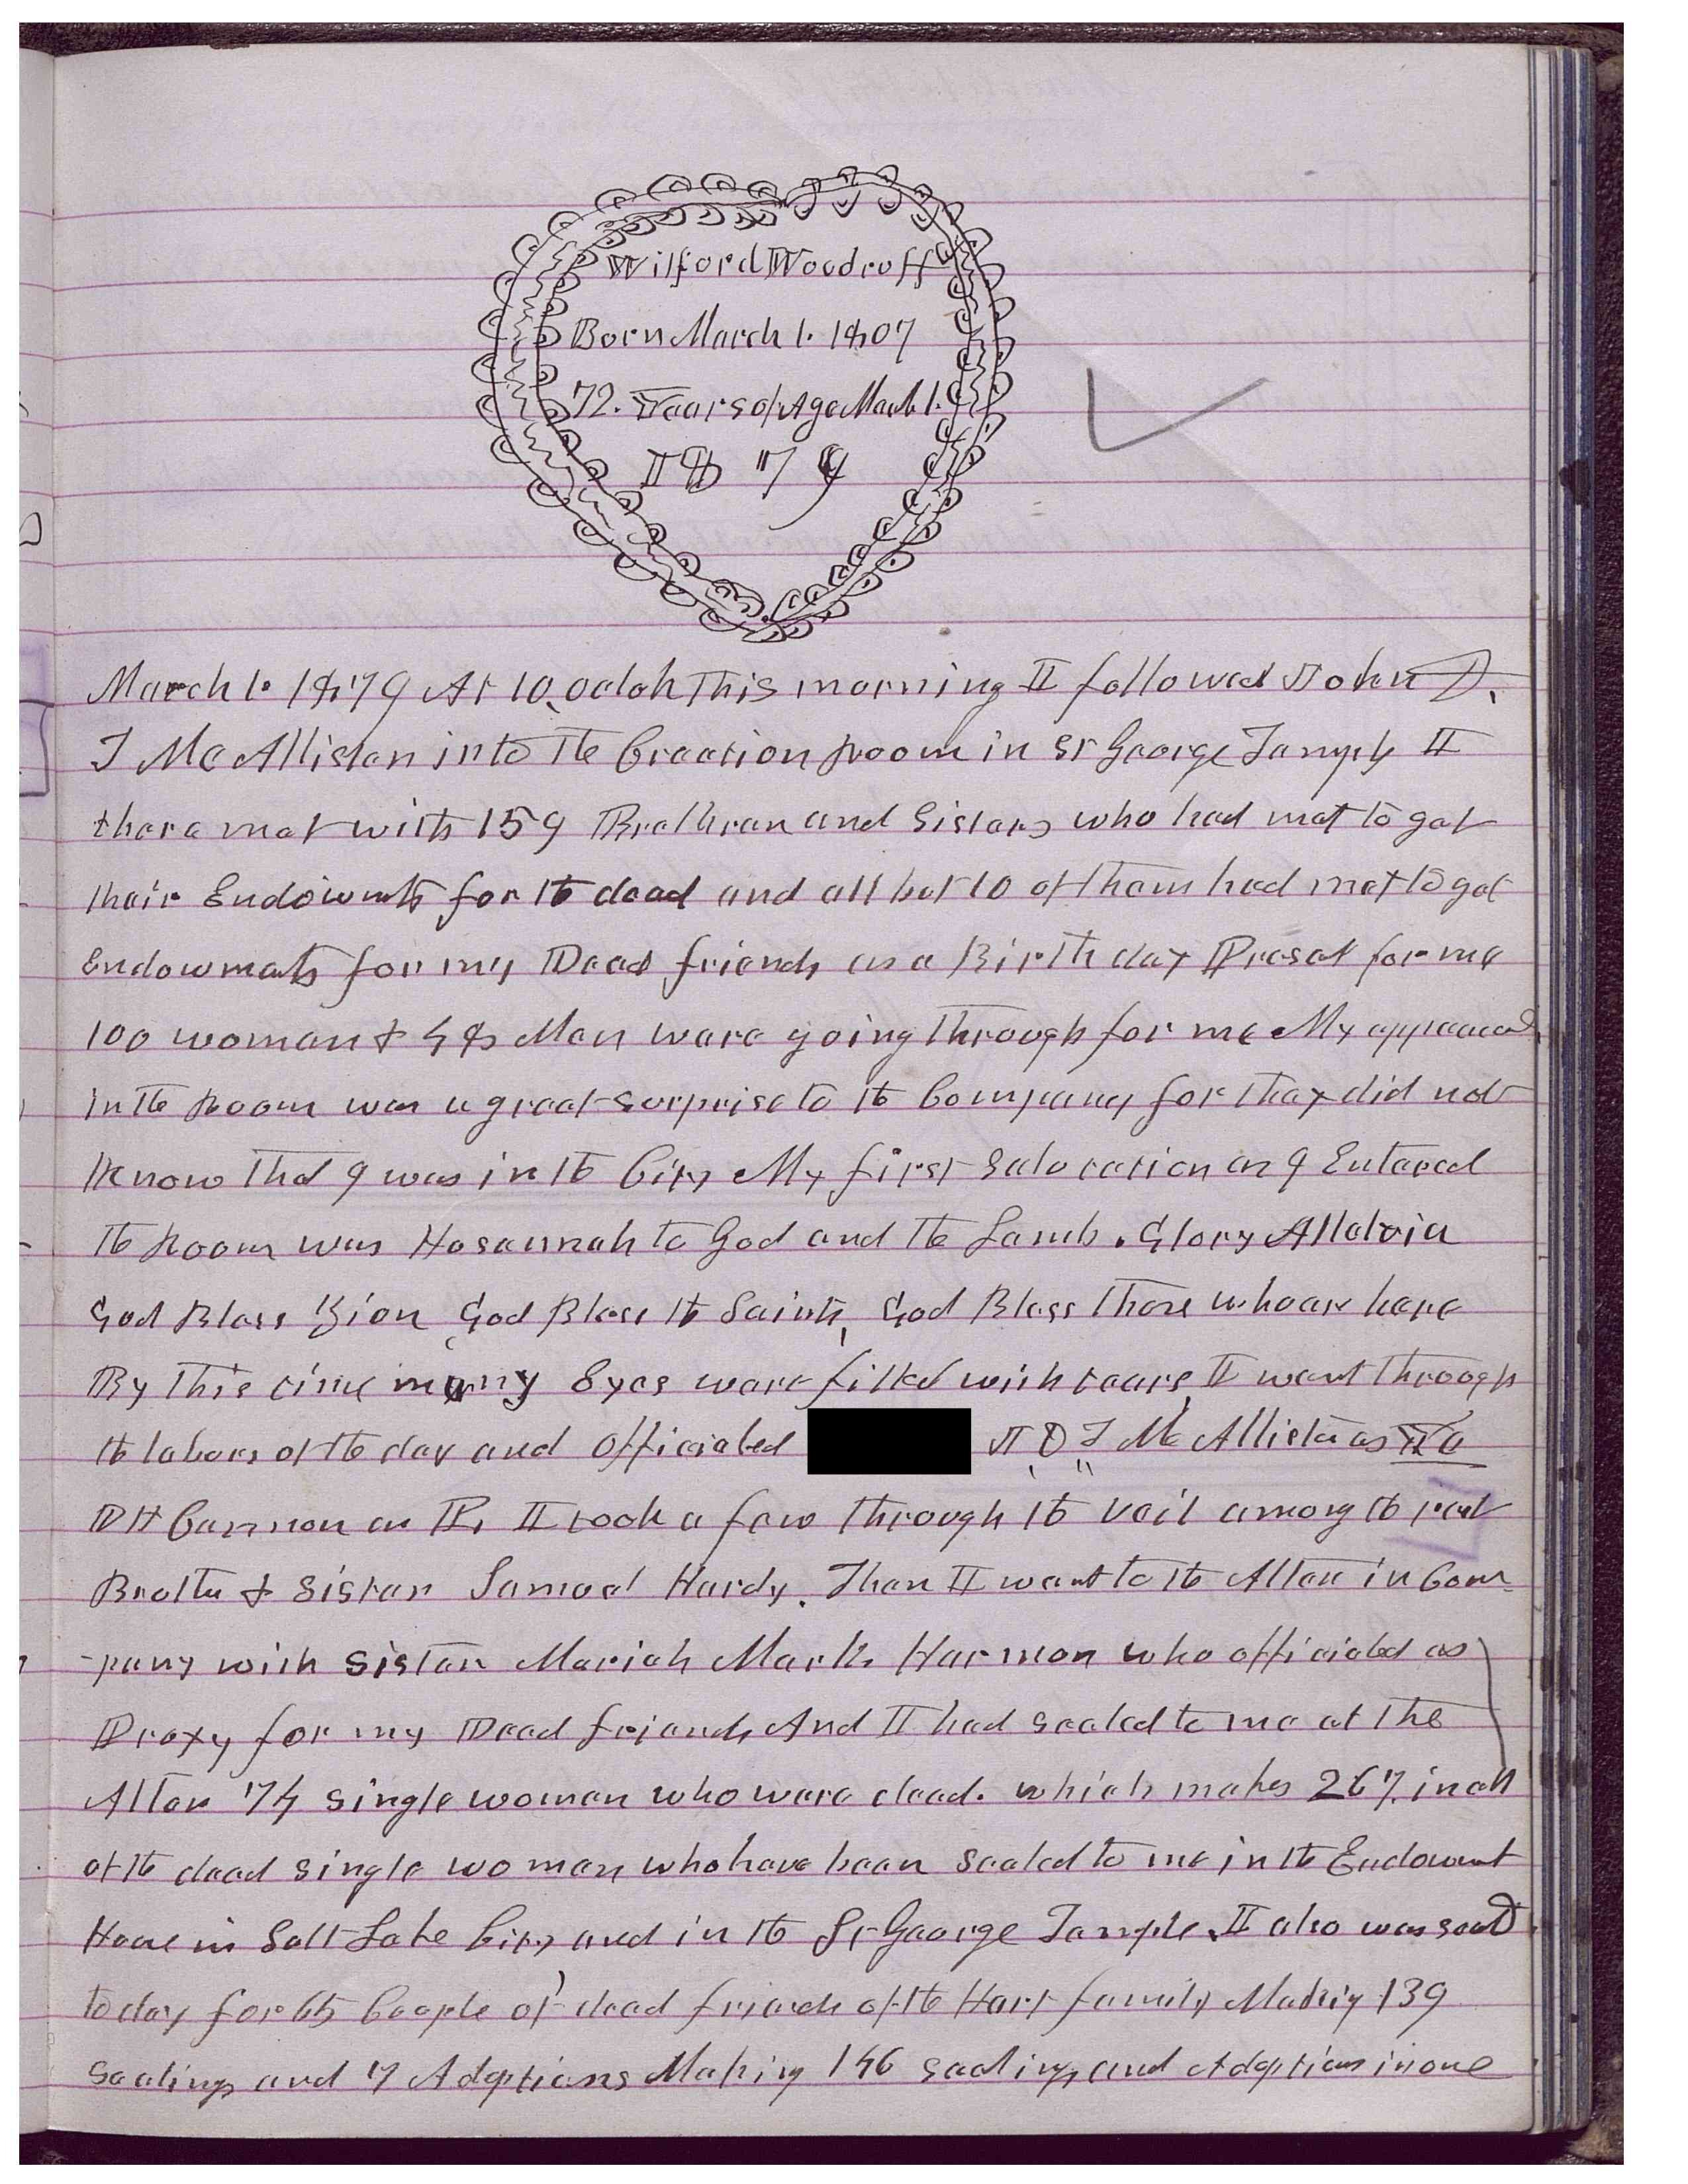 Wilford Woodruff
Born March 1. 1807
72. Years of Age March 1.
1879
March 1. 1879 At 10, oclok This morning I followed John D.
T McAllister into the Creation Room in St George Temple I
there met with 159 Brethren and Sisters who had met to get
their Endowmts for the dead and all but 10 of them had met to get
Endowmets for my Dead friends as a Birth day Preset for me
100 women & 48 Men were going through for me My appearance
in the Room was a great surprise to the Company for they did not
know that I was in the City My first Salutation as I Entered
the Room was Hosannah to God and the Lamb. Glory Alleluia
God Bless Zion, God Bless the Saints, God Bless those who are here
By this time many Eyes were filled with tears, I went through
the labors of the day and officiated J, D,, T McAllister as
D H Cannon as P, I took a few through the veil among the rest
Brother & Sister Samuel Hardy. Then I went to the Alter in Com-
-pany with Sister Mariah Mark Harmon who officiated as
Proxy for my Dead friends And I had sealed to me at the
Alter 74 single women who were dead. which makes 267, in all
of the dead single women who have been sealed to me in the Endowmt
House in Salt Lake City and in the St George Temple. I also was seald
to day for 65 Couple of dead friends of the Hart family Making 139
Sealings and 7 Adoptions Making 146 sealings, and Adoptions in one